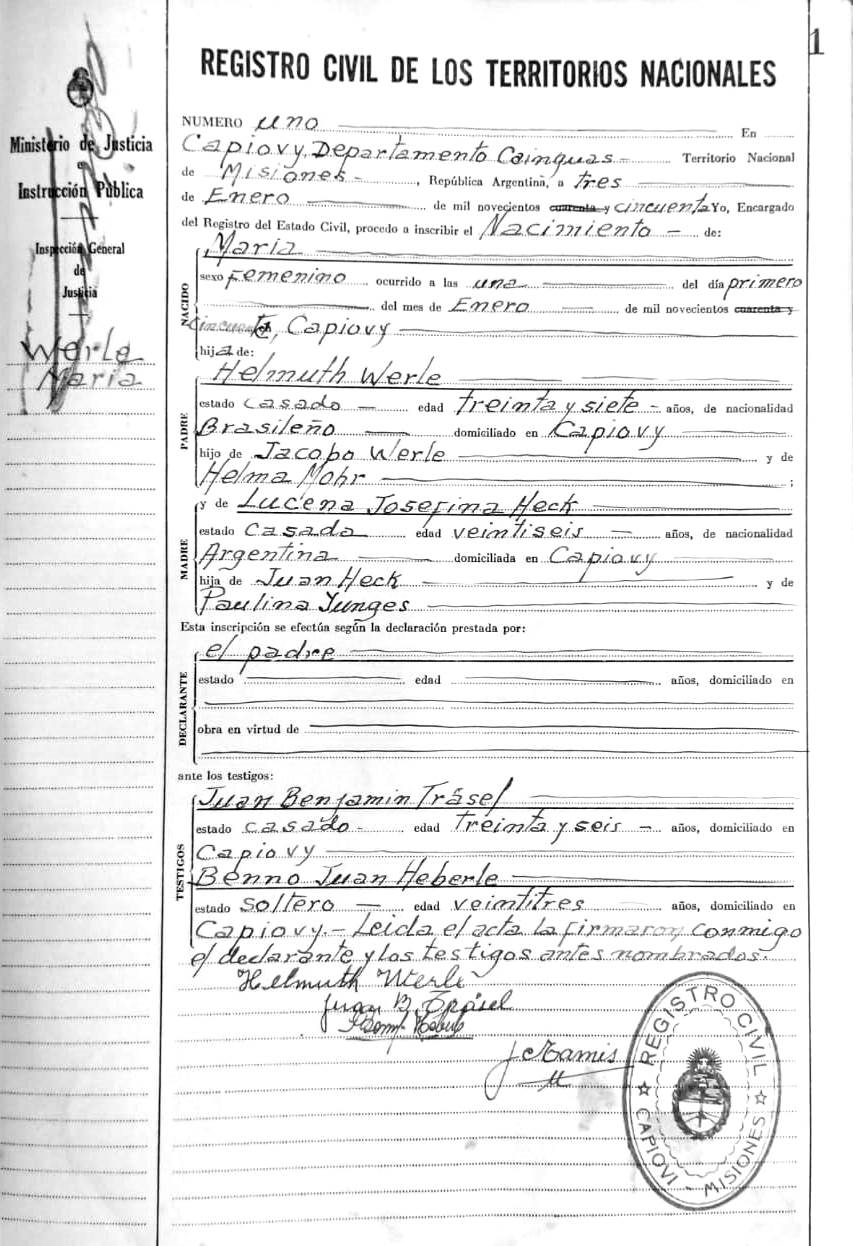 1
REGISTRO CIVIL DE LOS TERRITORIOS NACIONALES
Ministerio de Justicia
Instrucción Pública
Inspección General
de
Justicia
Werle
Maria
NUMERO uno En
Capiovy, Departamento Cainguas - Territorio Nacional
de Misiones -, República Argentina, a tres
de Enero de mil novecientos cuarenta y cincuenta Yo, Encargado
del Registro del Estado Civil, procedo a inscribir el Nacimiento - de:
Maria
NACIDO
sexo Femenino ocurrido a las una del día primero
del mes de Enero de mil novecientos cuarenta y
cincuenta, Capiovy
hija de:
Helmuth Werle
PADRE
estado casado - edad treinta y siete - años, de nacionalidad
Brasileño domiciliado en Capiovy
hijo de Jacobo Werle y de
Helma Mohr ;
y de Lucena Josefina Heck
MADRE
estado casada edad veintiseis - años, de nacionalidad
Argentina domiciliada en Capiovy
hija de Juan Heck y de
Paulina Junges
Esta inscripción se efectúa según la declaración prestada por:
el padre
DECLARANTE
estado edad años, domiciliado en
obra en virtud de
ante los testigos:
Juan Benjamin Träsel
TESTIGOS
estado casado - edad treinta y seis - años, domiciliado en
Capiovy
Benno Juan Heberle
estado soltero - edad veintitres años, domiciliado en
Capiovy.- Leida el acta la firmaron conmigo
el declarante y los testigos antes nombrados.
Helmuth Werle
Juan B. Träsel
REGISTRO CIVIL
CAPIOVI - MISIONES